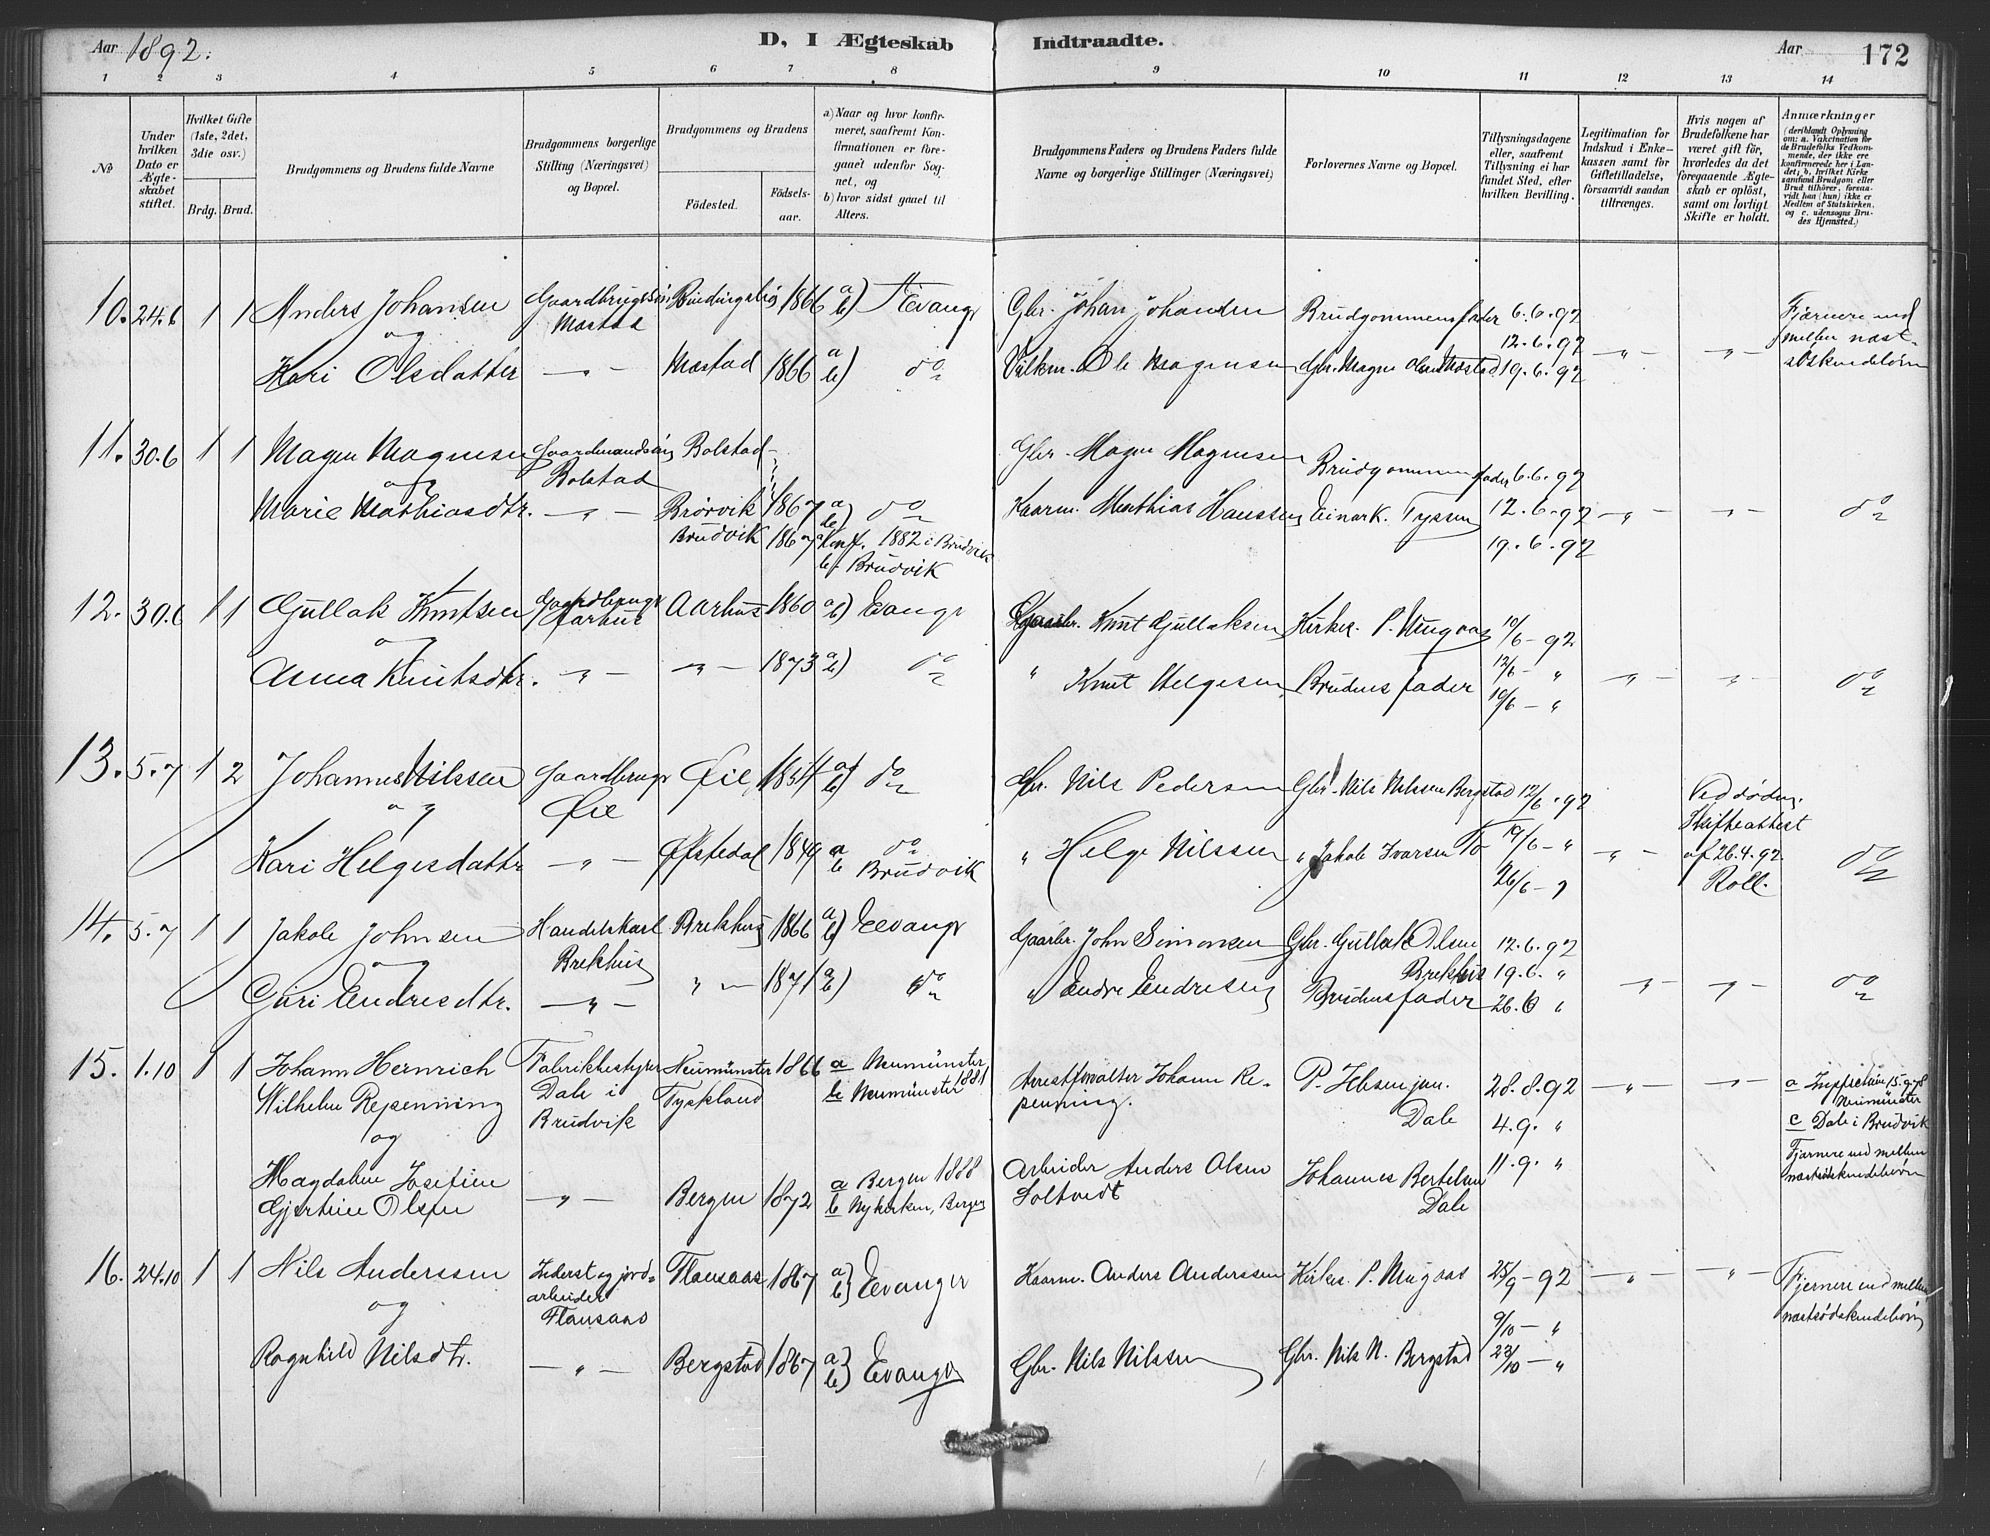 Aar 1892.
D, I Ægteskab Indtraadte.
Aar 172
1 2 3 4 5 6 7 8 9 10 11 12 13 14
No
Under hvilken Dato er Ægteskabet stiftet.
Hvilket Gifte (1ste, 2det, 3die osv.)
Brdg. Brud.
Brudgommens og Brudens fulde Navne
Brudgommens borgerlige Stilling (Næringsvei) og Bopæl.
Brudgommens og Brudens
Fødested.
Fødsels-aar.
a) Naar og hvor konfirmeret, saafremt Konfirmationen er foregaaet udenfor Sognet, og
b) hvor sidst gaaet til Alters.
Brudgommens Faders og Brudens Faders fulde Navne og borgerlige Stillinger (Næringsvei)
Forlovernes Navne og Bopæl.
Tillysningsdagene eller, saafremt Tillysning ei har fundet Sted, efter hvilken Bevilling.
Legitimation for Indskud i Enkekassen samt for Giftetilladelse, forsaavidt saadan tiltrænges.
Hvis nogen af Brudefolkene har været gift før, hvorledes da det foregaaende Ægteskab er opløst, samt om lovligt Skifte er holdt.
Anmærkninger
(deriblandt Oplysning om: a. Vakcination for de Brudefolks Vedkommende, der ikke ere konfirmerede her i Landet; b, hvilket Kirkesamfund Brudgom eller Brud tilhører, forsaavidt han (hun) ikke er Medlem af Statskirken. og c. udensogns Brudes Hjemsted.)
10. 24.6 1 1 Anders Johansen Gaardbrugssøn 1866 a b) Evangr Gbr. Johan Johansen Brudgommens fader 6.6.92 Fjærnere end
og Mæstad 12.6.92 mellem næst-
Kari Olsdatter — " — Mæstad 1866 a b) do Ole Magnesen Gbr. Magne Olsen Mæstad 19.6.92 — " — — " — søskendebørn
11. 30.6 1 1 Magne Magnesen Gaardmandssøn Bolstad Gbr. Magne Magnesen Brudgommens fader 6.6.92
og Bolstad
Marie Mathiasdtr. — " — Brørvik 1867 a b) do Kaarm. Matthias Hanssen Einar K. Tyssen 12.6.92 — " — — " — do
Brudvik 1867 Konf. 1882 i Brudvik 19.6.92
b. Brudvik
12. 30.6 1 1 Gullak Knutsen Gaardbrugr Aarhus 1860 a b) Evangr Gaarbr. Knut Gullaksen Kirkes. P. Mugaas 10/6 - 92
og Aarhus 12/6 - "
Anna Knutsdtr. — " — — " — 1873 a b) do " Knut Helgesen Brudens fader 19/6 - " — " — — " — do
13. 5.7 1 2 Johannes Nilssen Gaardbrugr Øie 1854 a b) do Gbr. Nils Pedersen Gbr. Nils Nilssen Bergstad 12/6.92 Ved døden.
og Øie Skifteattest
Kari Helgesdatter — " — Øfstedal 1849 a do " Helge Nilssen " Jakob Ivarsen Fo 19/6 - " — " — af 26.4.92. do
b Brudvik 26/6 - " Koll.
14. 5.7 1 1 Jakob Johnsen Handelskarl Brekhus 1866 a b) Evangr Gaarbr. John Simonsen Gbr. Gullak Olsen 12.6.92
og Brekhus Brekhus 19.6. "
Guri Endresdtr. — " — " — 1871 a b) do " Endre Endresen Brudens fader 26.6 " — " — — " — do
15. 1.10 1 1 Johann Heinrich Fabrikbestyrer Neumünster 1866 a Neumünster 1881 Arrestforvalter Johann Re- P. Jebsen jun. 28.8.92 — " — — " — a 15.9.78
Wilhelm Repenning Dale i Tyskland b Neumünster penning. Dale 4.9. " Neumünster
og Brudvik c Dale i Brudvik
Magdalene Josefine a Bergen 1888 Arbeider Anders Olsen Johannes Bertelsen 11.9. " Fjærnere end mellem
Gjertine Olsen — " — Bergen 1872 b Nykirken, Bergen Soltvedt Dale næstsøskendebørn
16. 24.10 1 1 Nils Anderssen Inderst og jord- Flansaas 1867 a b} Evanger Kaarm. Anders Anderssen Kirkes. P. Mugaas 25/9 - 92 — " — — " — Fjernere end mellem
og arbeider 9/10 - " næstsødskendebørn
Flansaas
Ragnhild Nilsdtr. — " — Bergstad 1867 a b} Evangr Gbr. Nils Nilssen Gbr. Nils N. Bergstad 23/10 - "